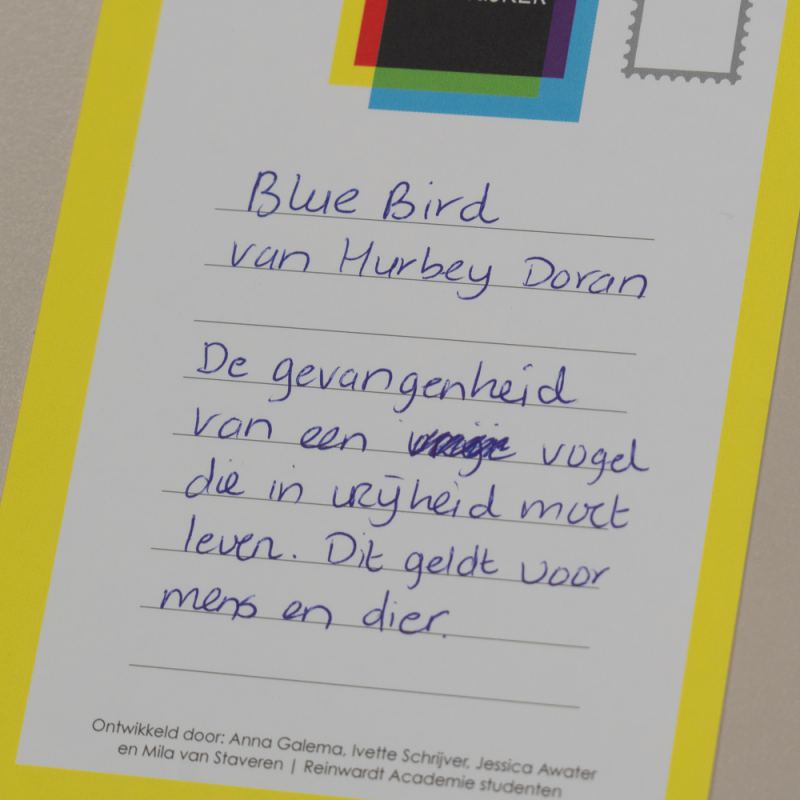 Blue Bird
van Hurbey Doran
De gevangenheid
van een vogel
die in vrijheid moet
leven. Dit geldt voor
mens en dier.
Ontwikkeld door: Anna Galema, Ivette Schrijver, Jessica Awater
en Mila van Staveren | Reinwardt Academie studenten